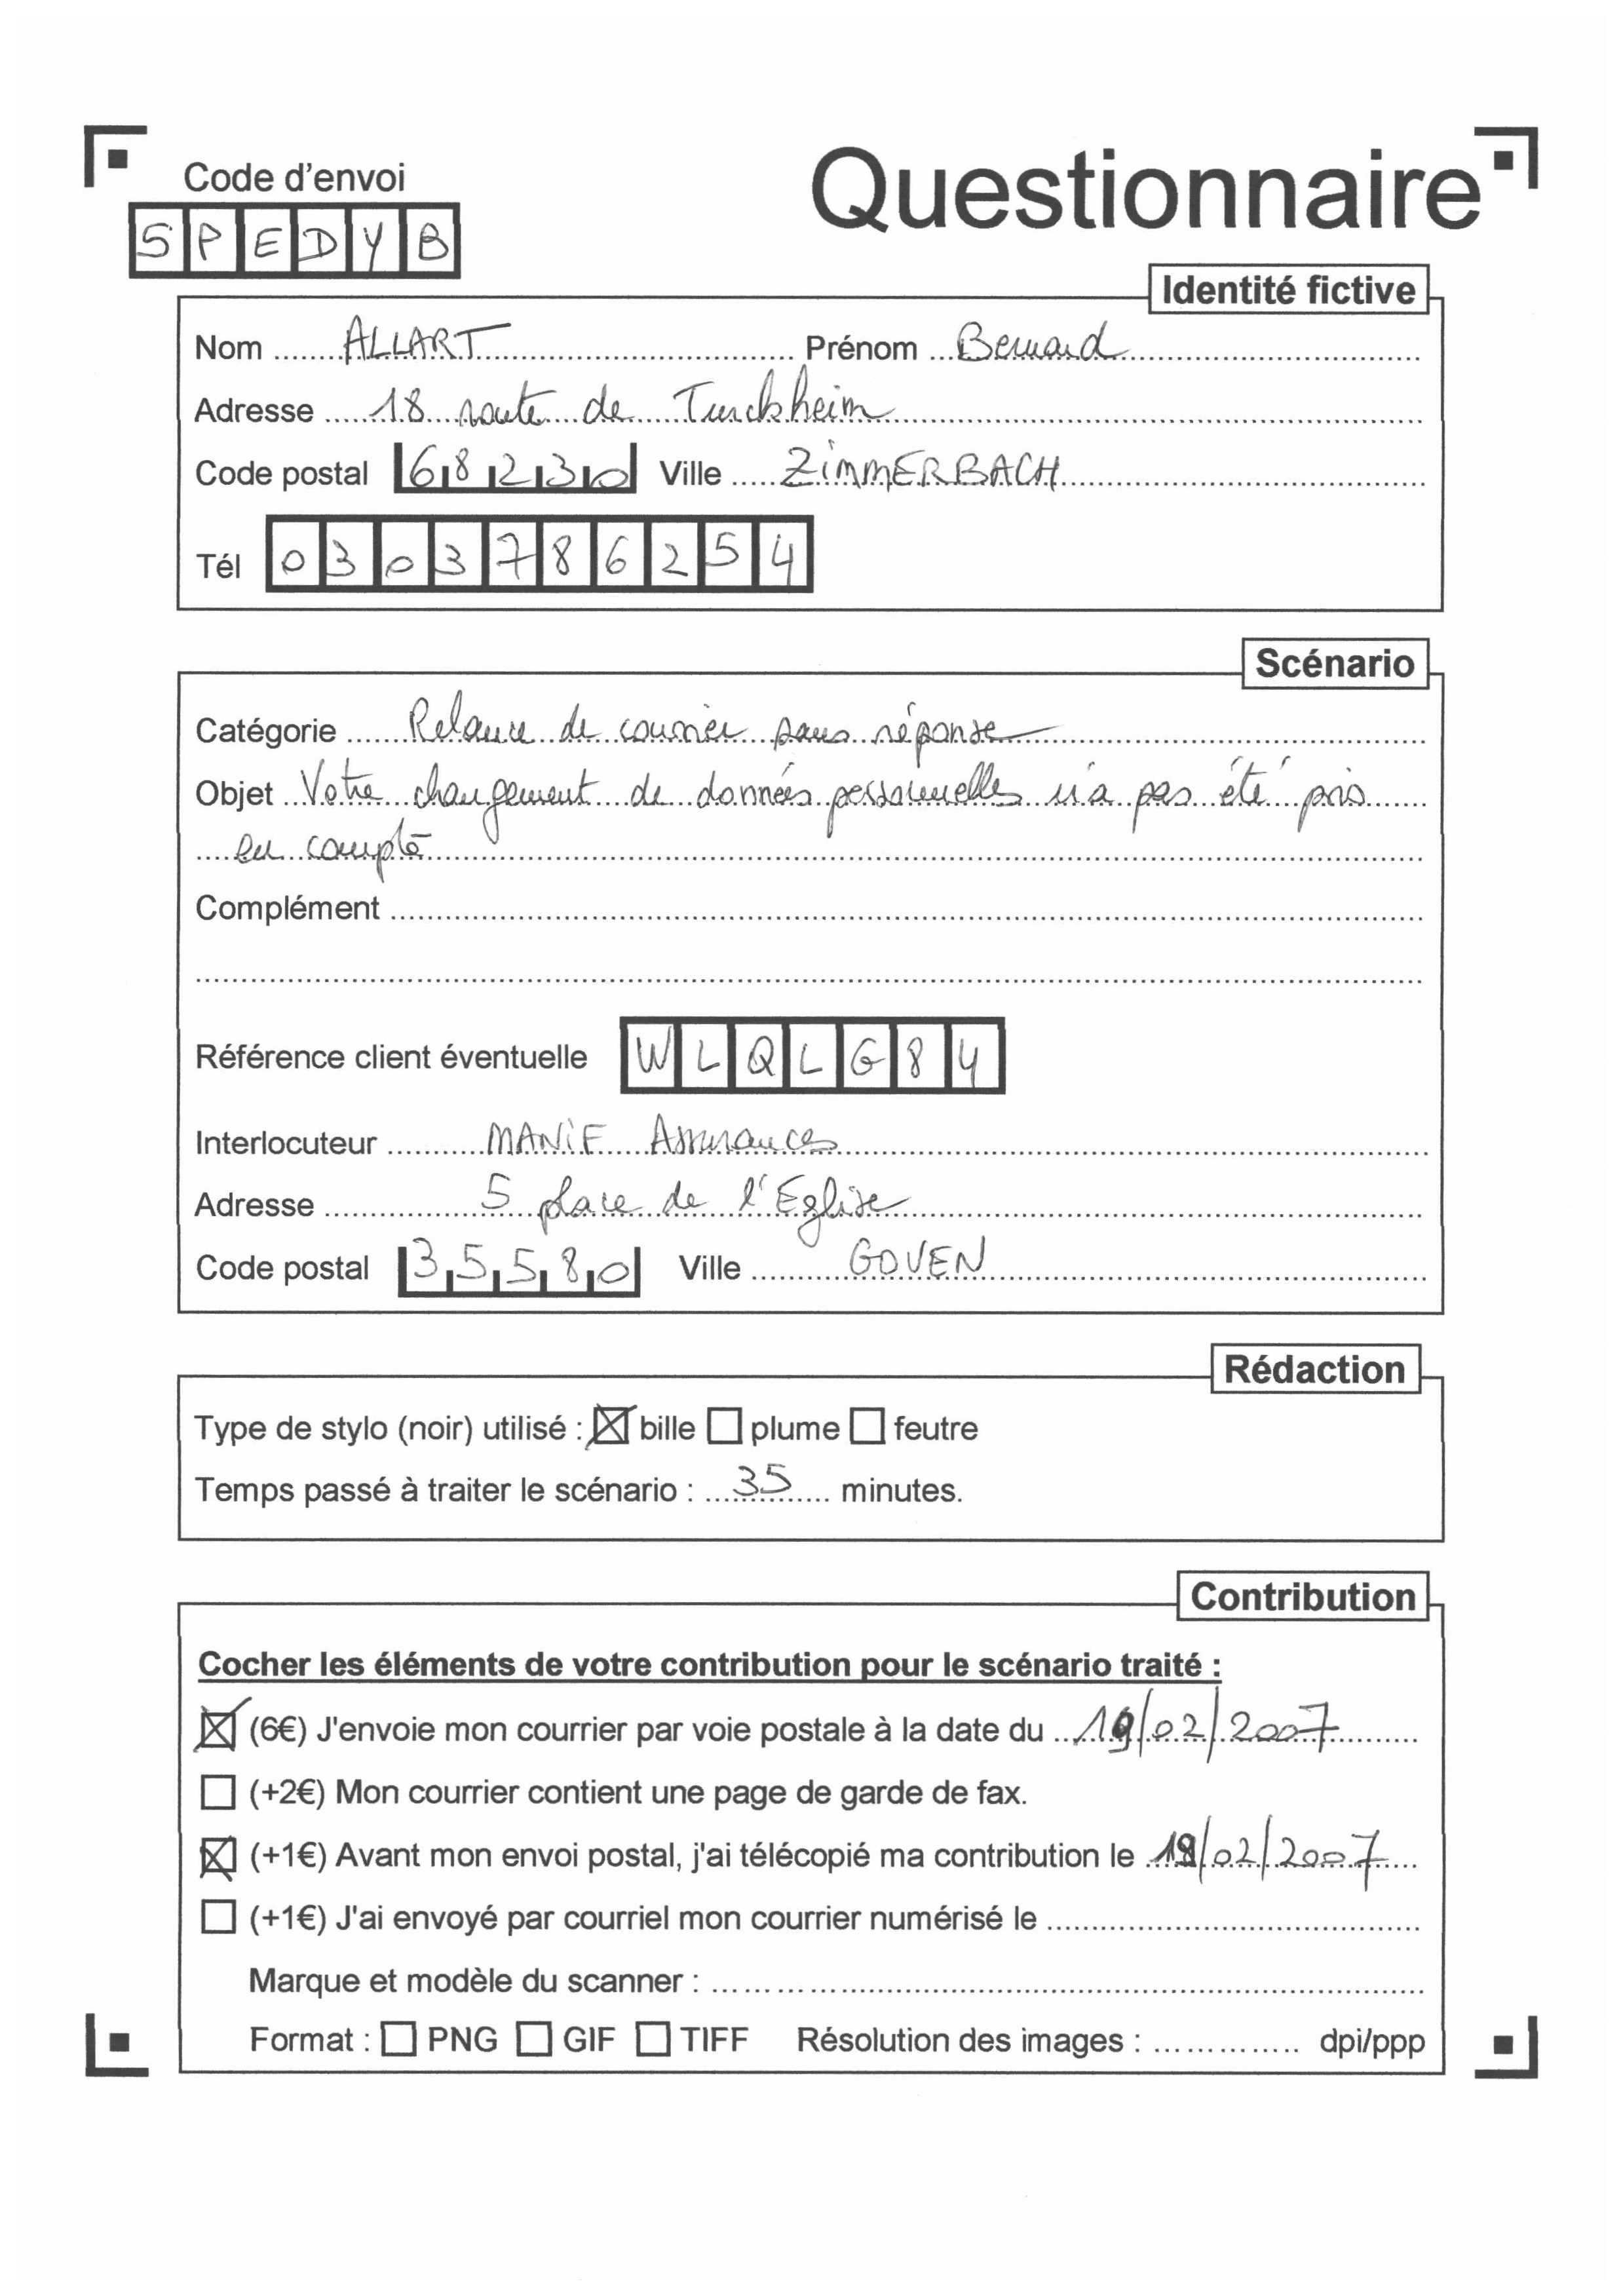 Code d'envoi
Questionnaire
SPEDYB
Identité fictive
Nom ALLART Prénom Bernard
Adresse 18 route de Turckheim
Code postal 68230 Ville ZIMMERBACH
Tél 0303786254
Scénario
Catégorie Relance de courrier sans réponse
Objet Votre changement de données personnelles n'a pas été pris
en compte
Complément
Référence client éventuelle WLQLG84
Interlocuteur MANIF Assurances
Adresse 5 place de l'Eglise
Code postal 35580 Ville GOVEN
Rédaction
Type de stylo (noir) utilisé : ☒ bille ☐ plume ☐ feutre
Temps passé à traiter le scénario : 35 minutes.
Contribution
Cocher les éléments de votre contribution pour le scénario traité :
☒ (6€) J'envoie mon courrier par voie postale à la date du 19/02/2007
☐ (+2€) Mon courrier contient une page de garde de fax.
☒ (+1€) Avant mon envoi postal, j'ai télécopié ma contribution le /02/2007
☐ (+1€) J'ai envoyé par courriel mon courrier numérisé le
Marque et modèle du scanner :
Format : ☐ PNG ☐ GIF ☐ TIFF Résolution des images : dpi/ppp